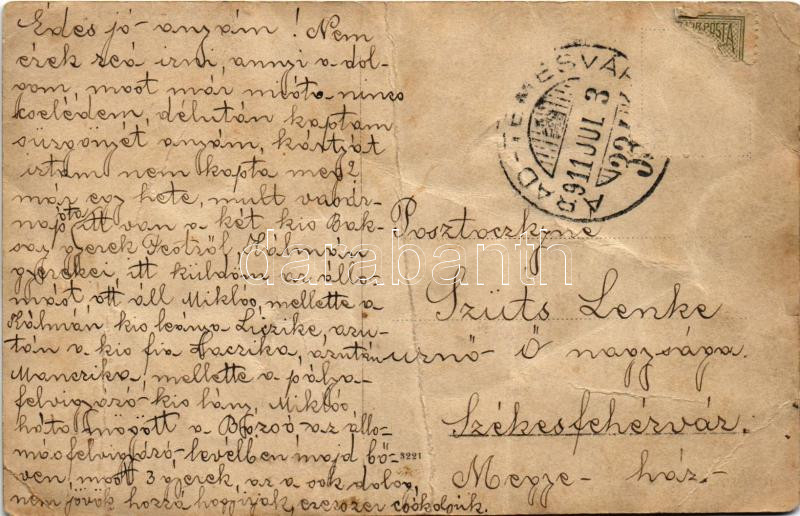 Édes jó anyám! Nem
érek reá irni, annyi a dol-
gom, most már mióta nincs
cselédem, délután kaptam
sürgönyét anyám, kártyát
irtam nem kapta meg?
már egy hete, mult vasár-
nap óta itt van a két kis Bak-
say gyerek Pestről, Kálmán
gyerekei, itt küldöm az állo-
mást, ott áll Miklós, mellette a
Kálmán kis leánya Liczike, azu-
tán a kis fia Laczika, azután
Manczika, mellette a pálya-
felvigyázó kis lány, Miklós
háta mögött a az állo-
másfelvigyázó, levélben majd bő-
ven, most 3 gyerek, az a sok dolog,
nem jövök hozzá hogy irjak, ezerszer csókoljuk.
3221
Postatczkyne
Szüts Lenke
urnő Ő nagysága.
Székesfehérvár.
Megye-ház.-
ARAD-TEMESVÁR
911 JUL 3
POSTA
darabanth